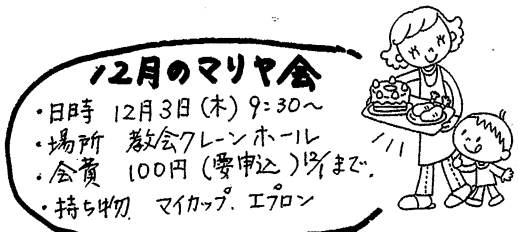 12月のマリヤ会
・日時 12月3日(木) 9:30〜
・場所 教会クレーンホール
・会費 100円(要申込)12/1まで.
・持ち物 マイカップ. エプロン